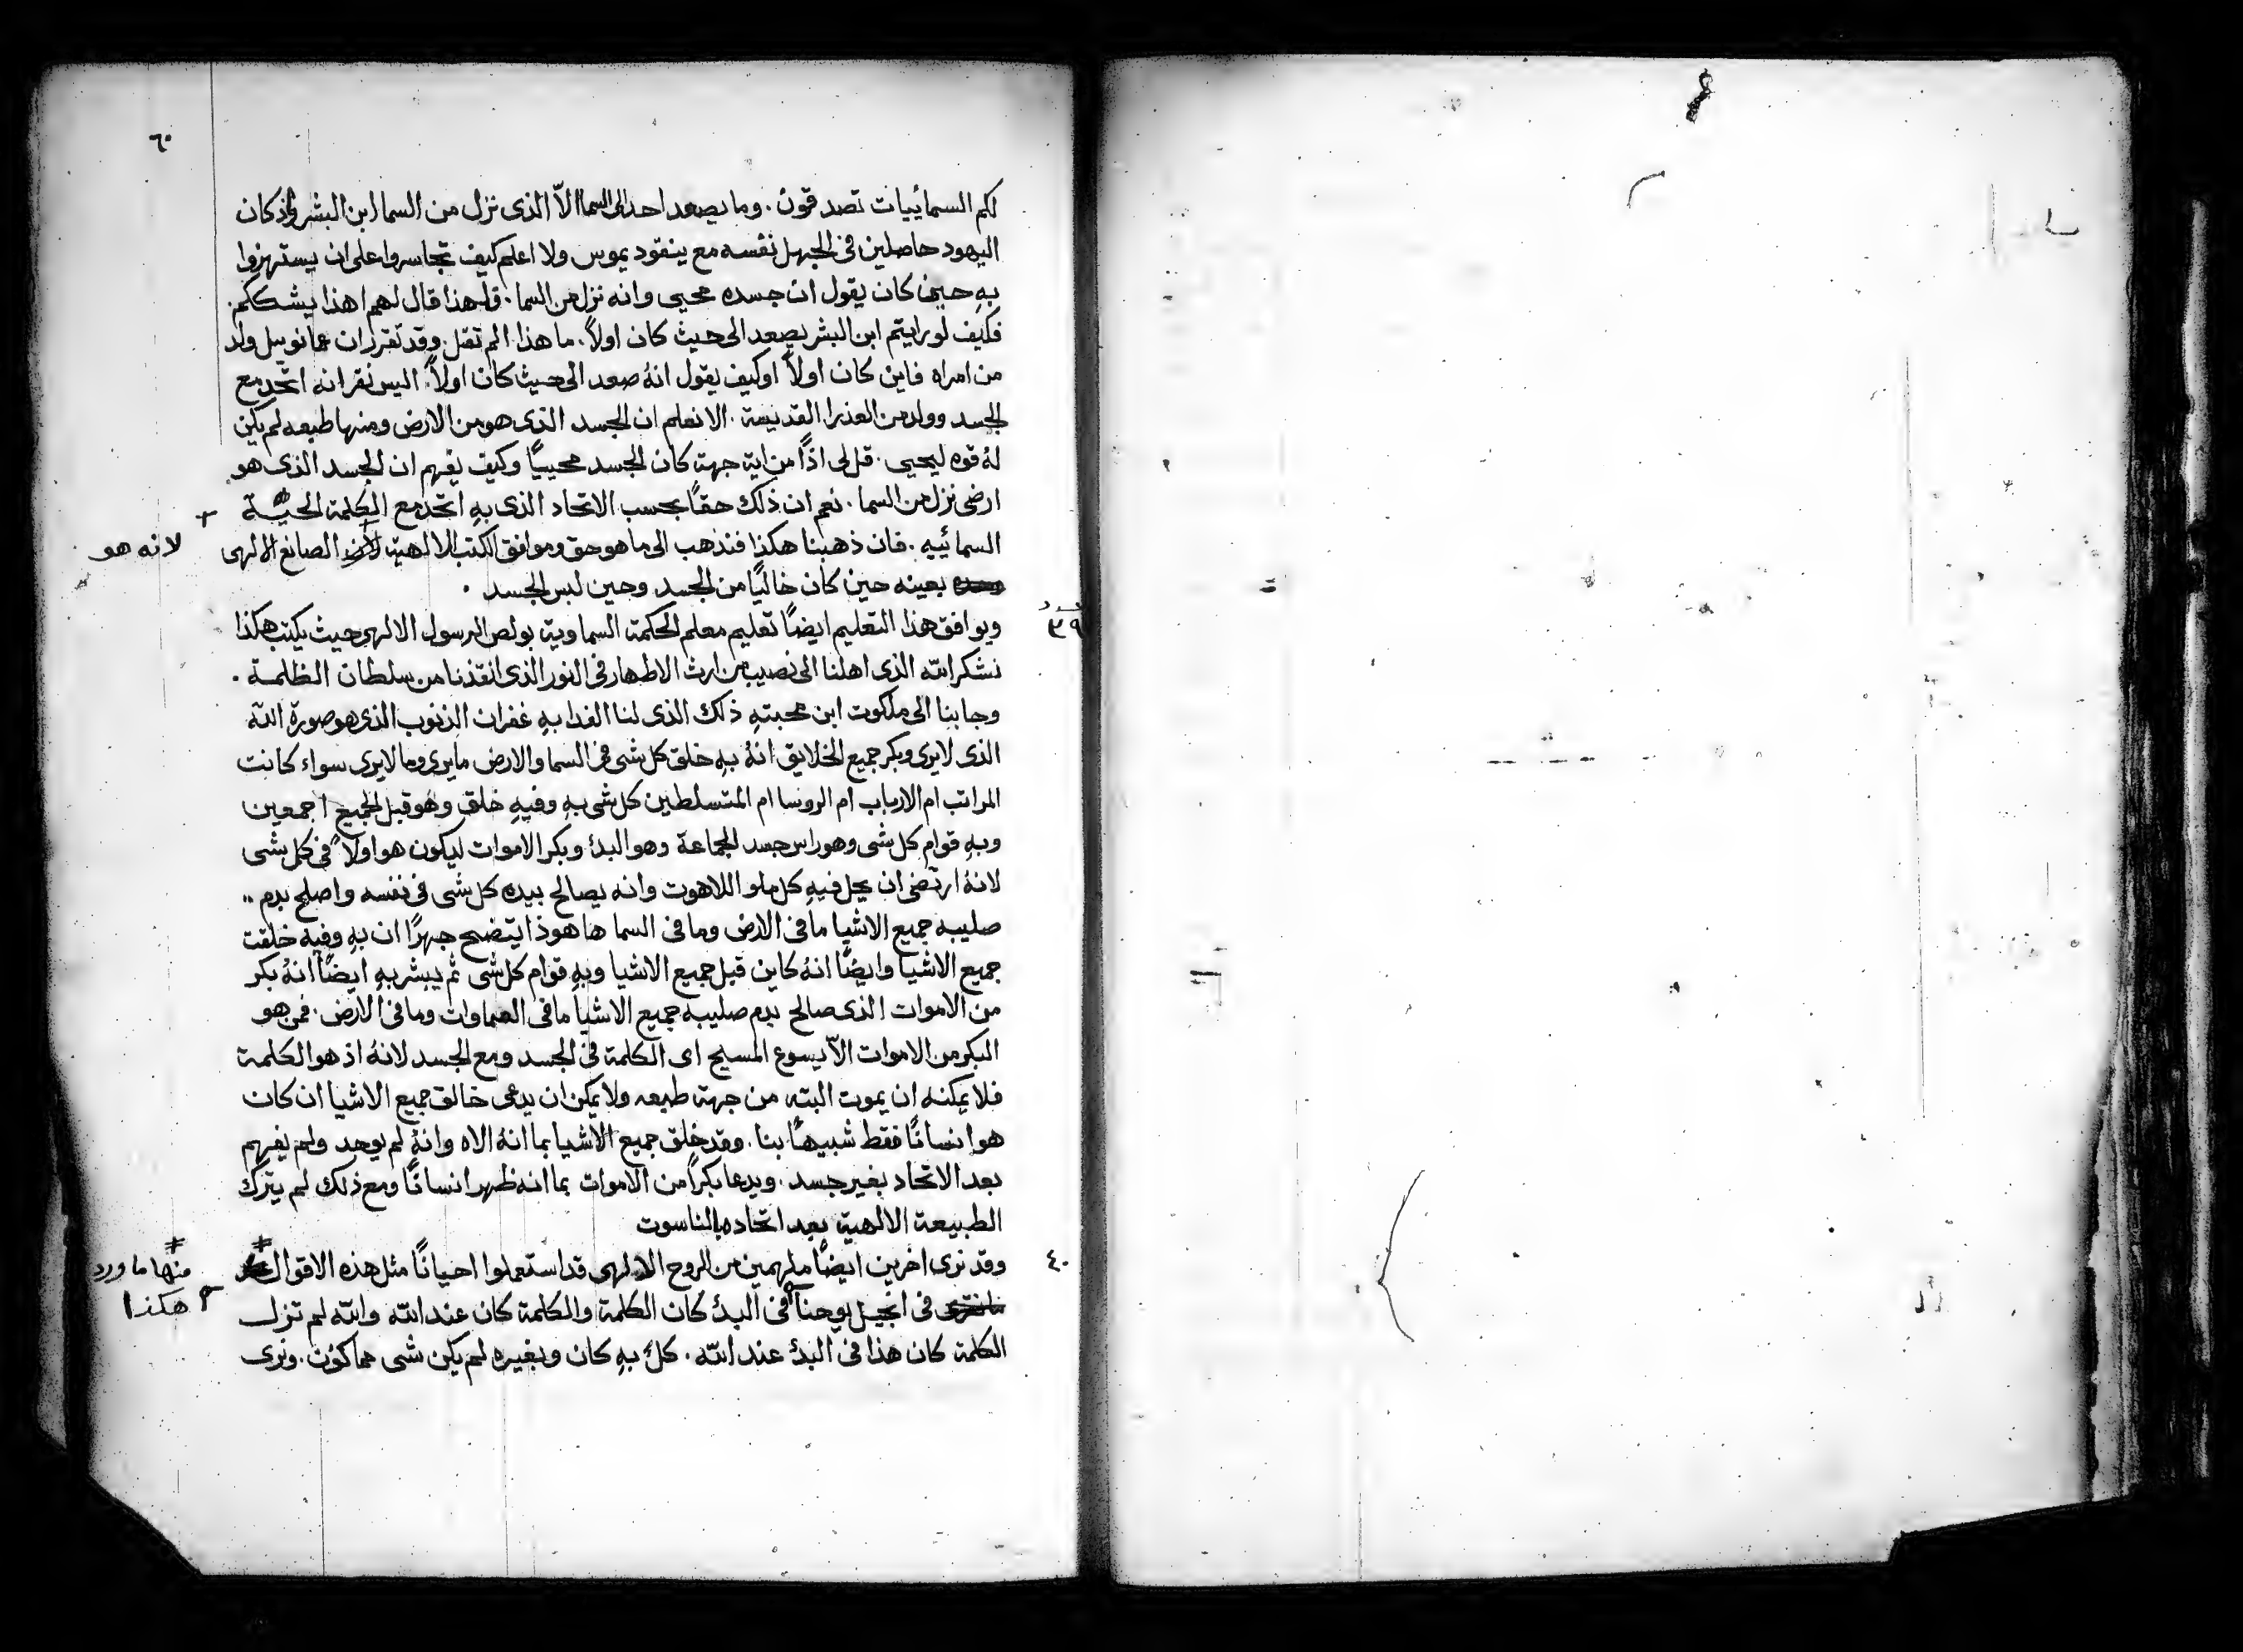 ٦٠
لكم السمائييات تصدقون . وما يصعد احد الى السما الاّ الذى نزل من السما ابن البشر واذ كان
اليهود حاصلين فى الجهل نفسه مع ينقوديموس ولا اعلم كيف تجاسروا على ان يستهزوا
بهِ حين كان يقول ان جسده محيى وانه نزل من السما . فلهذا قال لهم اهذا يشككم .
فكيف لو رايتم ابن البشر يصعد الى حيث كان اولاً . ما هذا الم تقل وقد تقرر ان عمانوييل ولد
من امراه فاين كان اولاً او كيف يقول انهُ صعد الى حيث كان اولاً . اليس نقر انه اتحد مع
الجسد وولد من العذرا القديسة . الا نعلم ان الجسد الذى هو من الارض ومنها طبعه لم يكن
لهُ قوه ليحيى . قل لى اذًا من اية جهة كان الجسد محييًا وكيف يفهم ان الجسد الذى هو
ارضى نزل من السما . نعم ان ذلك حقًا بحسب الاتحاد الذى بهِ اتحد مع الكلمة الحيّة
السمائييه . فان ذهبنا هكذا فنذهب الى ما هو حق وموافق الكتب الالهية لان الصانع الالهى
لانه هو
وحده بعينه حين كان خاليًا من الجسد وحين لبس الجسد .
٣٩
ويوافق هذا التعليم ايضًا تعليم معلم الحكمة السماوية بولص الرسول الالهى حيث يكتب هكذا
نشكر الله الذى اهلنا الى نصيب من ارث الاطهار فى النور الذى انقذنا من سلطان الظلمة .
وجابنا الى ملكوت ابن محبتهِ ذلك الذى لنا الفدا بهِ غفران الذنوب الذى هو صورة الله
الذى لا يرى وبكر جميع الخلايق انهُ بهِ خلق كل شى فى السما والارض ما يرى وما لا يرى سواء كانت
المراتب ام الارباب ام الروسا ام المتسلطين كل شى بهِ وفيهِ خلق وهو قبل الجميع اجمعين
وبهِ قوام كل شى وهو راس جسد الجماعة وهو البدؤ وبكر الاموات ليكون هو اولاً فى كل شى
لانهُ ارتضى ان يحل فيهِ كل ملو اللاهوت وانه يصالح بيده كل شى فى نفسه واصلح بدم ..
صليبه جميع الاشيا ما فى الارض وما فى السما ها هوذا يتضح جهرًا ان بهِ وفيه خلقت
جميع الاشيا وايضًا انهُ كاين قبل جميع الاشيا وبهِ قوام كل شى ثم يبشر بهِ ايضًا انهُ بكر
من الاموات الذى صالح بدم صليبه جميع الاشيا ما فى السماوات وما فى الارض . فمن هو
البكر من الاموات الاّ يسوع المسيح اى الكلمة فى الجسد ومع الجسد لانهُ اذ هو الكلمة
فلا يمكنه ان يموت البته من جهة طبعه ولا يمكن ان يدعى خالق جميع الاشيا ان كان
هو انسانًا فقط شبيهًا بنا . وقد خلق جميع الاشيا بما انهُ الاه وانهُ لم يوحد ولم يفهم
بعد الاتحاد بغير جسد . ويدعا بكراً من الاموات بما انه ظهر انسانًا ومع ذلك لم يترك
الطبيعة الالهية بعد اتحاده بالناسوت
٤٠
وقد نرى اخرين ايضًا ملهمين من الروح الالهى قد استعملوا احيانًا مثل هذه الاقوال
منها ما ورد
هكذا
فى انجيل يوحنا فى البدؤ كان الكلمة والكلمة كان عند الله والله لم تزل
الكلمة كان هذا فى البدؤ عند الله . كلٌ بهِ كان وبغيره لم يكن شى مما كون . ونرى